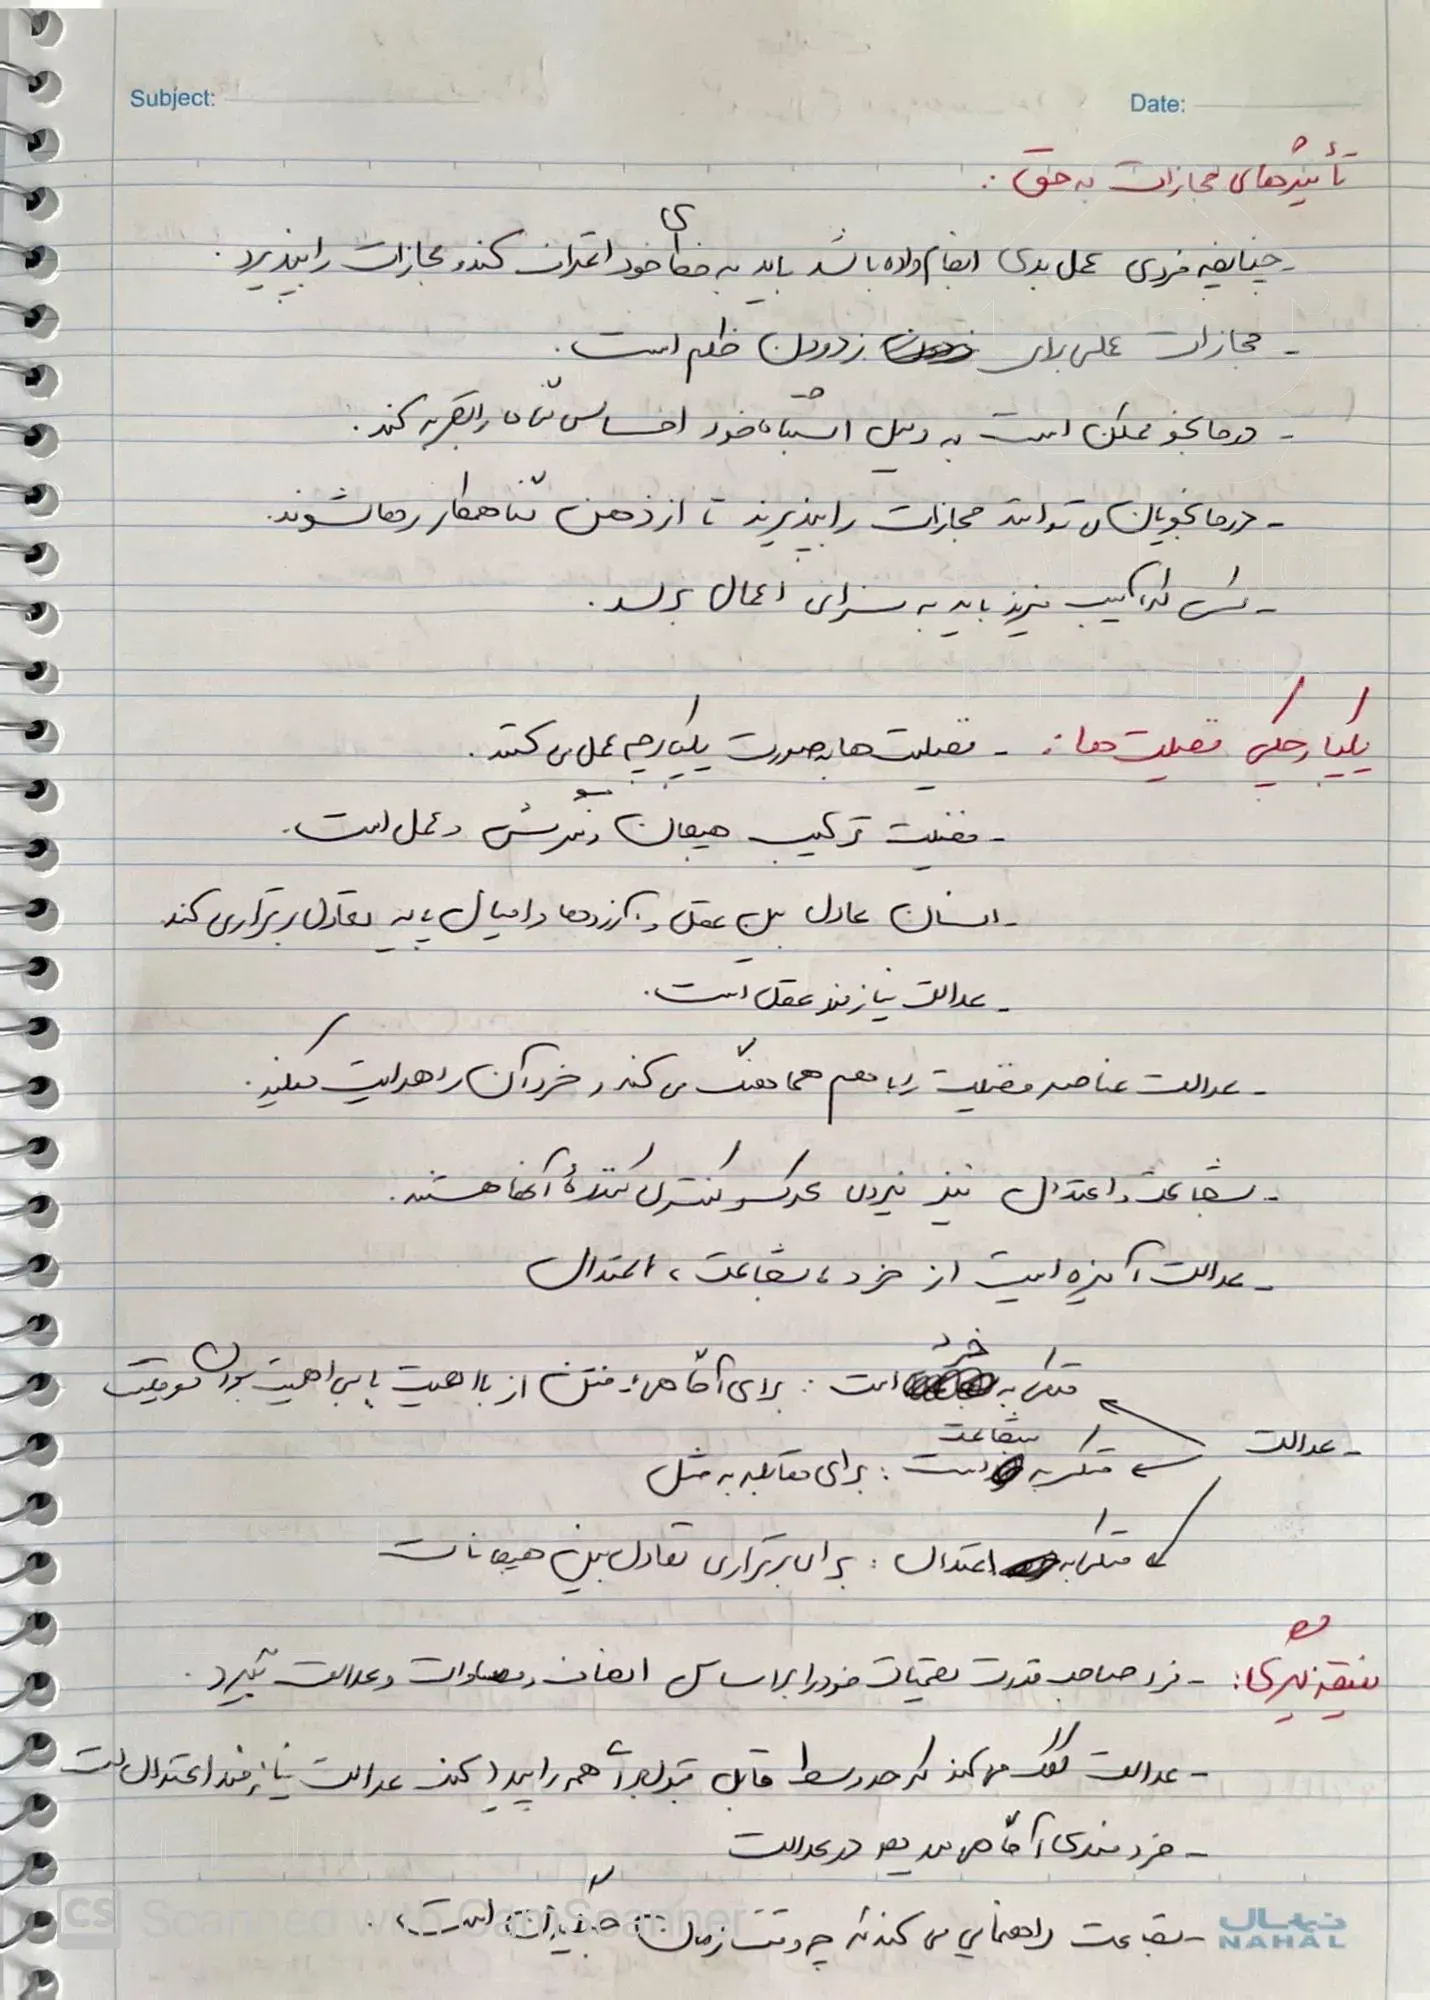 Subject:
Date:
تأثیرهای مجازات به حق :
- چنانچه فردی عمل بدی انجام داده باشد باید به خطای خود اعتراف کند و مجازات را بپذیرد .
- مجازات عملی برای زدودن ظلم است .
- درمانجو ممکن است به دلیل اشتباه خود احساس گناه را تجربه کند .
- درمانجویان می توانند مجازات را بپذیرند تا از ذهن گناهکار رها شوند.
- کسی که آسیب میزند باید به سزای اعمال برسد .
یکپارچگی فضیلت ها : - فضیلت ها به صورت یکپارچه عمل می کنند .
- فضیلت ترکیب هیجان و نگرش و عمل است .
- انسان عادل بین عقل و آرزوها و امیال باید تعادل برقراری کند
- عدالت نیازمند عقل است .
- عدالت عناصر فضیلت را با هم هماهنگ می کند و خرد آن را هدایت میکند .
- شجاعت و اعتدال نیز نیروی محرک و کنترل کنندهٔ آنها هستند .
- عدالت آمیزه است از خرد ، شجاعت ، اعتدال
متکی به خرد است : برای آگاهی از بااهمیت یا بی اهمیت بودن موقعیت
- عدالت
متکی به شجاعت است : برای مقابله به مثل
متکی به اعتدال : برای برقراری تعادل بین هیجانات
نتیجه گیری : - فرد صاحب قدرت تصمیمات خود را بر اساس انصاف و مساوات و عدالت بگیرد .
- عدالت کمک می کند که حد وسط قابل قبول برای همه را پیدا کند عدالت نیازمند اعتدال است
- خردمندی آگاهی میدهد در عدالت
- شجاعت راهنمایی می کند که چه وقت زمان جنگیدن است .
نهال
NAHAL
CS Scanned with CamScanner